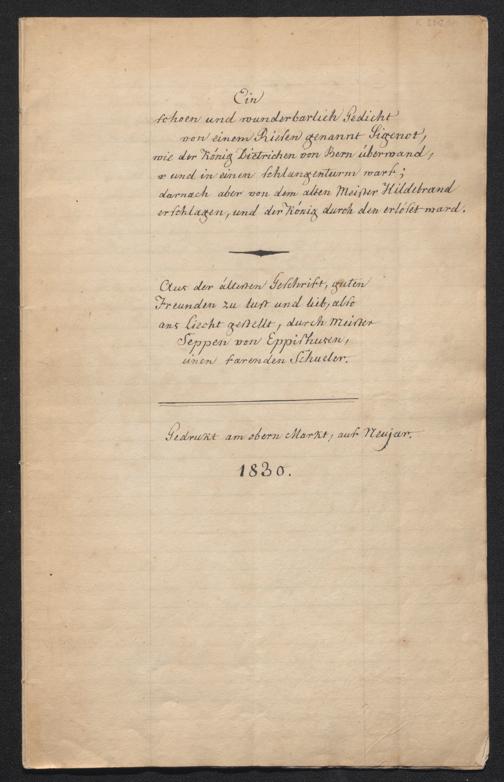 Ein
schoen und wunderbarlich Gedicht
von einem Riesen genannt Sigenot,
wie der König Dietrichen von Bern überwand,
und in einen schlangenturm warf;
darnach aber von dem alten Meister Hildebrand
erschlagen, und der König durch den erlöset ward.
Aus der ältesten Geschrift, guten
Freunden zu lust und lieb, also
ans Liecht gestellt, durch Meister
Seppen von Eppishusen,
einen farenden Schueler.
Gedrukt am obern Markt, auf Neujar.
1830.